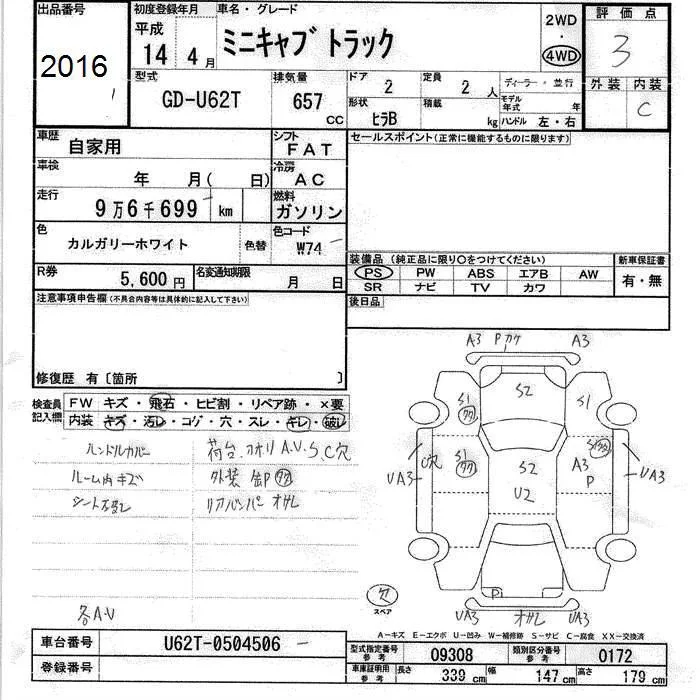 出品番号
2016
初度登録年月
平成
14年 4月
車名・グレード
ミニキャブ トラック
2WD
4WD
評価点
3
外装 内装
C
型式
GD-U62T
排気量
657
cc
ドア
2
定員
2人
形状
ヒラB
積載
kg
ディーラー・並行
モデル年式 年
ハンドル 左・右
車歴
自家用
シフト
FAT
車検
年 月( 日)
冷房
AC
走行
9万6千699 km
燃料
ガソリン
色
カルガリーホワイト
色替
色コード
W74
R券
5,600円
名変通知期限
月 日
セールスポイント(正常に機能するものに限ります)
装備品 (純正品に限り〇をつけてください)
新車保証書
PS PW ABS エアB AW
SR ナビ TV カワ
有・無
後日品
注意事項申告欄(不具合内容等は具体的に記入して下さい)
修復歴 有〔箇所 〕
検査員記入欄
FW キズ・飛石・ヒビ割・リペア跡・×要
内装 キズ・汚レ・コゲ・穴・スレ・キレ・破レ
ハンドルカバー
ルーム内キズ
荷台、アオリ A.V.S.C穴
外装
リアバンパー
各A.V
A3 Pカケ A3
S2
S1
S1
S1
S2
U2
A3
P
C穴
UA3
UA3
P
UA3
UA3
スペア
A−キズ E−エクボ U−凹み W−補修跡 S−サビ C−腐食 XX−交換済
車台番号
U62T-0504506
登録番号
型式指定番号 参考
09308
類別区分番号 参考
0172
車庫証明用 参考
長さ 339 cm
幅 147 cm
高さ 179 cm